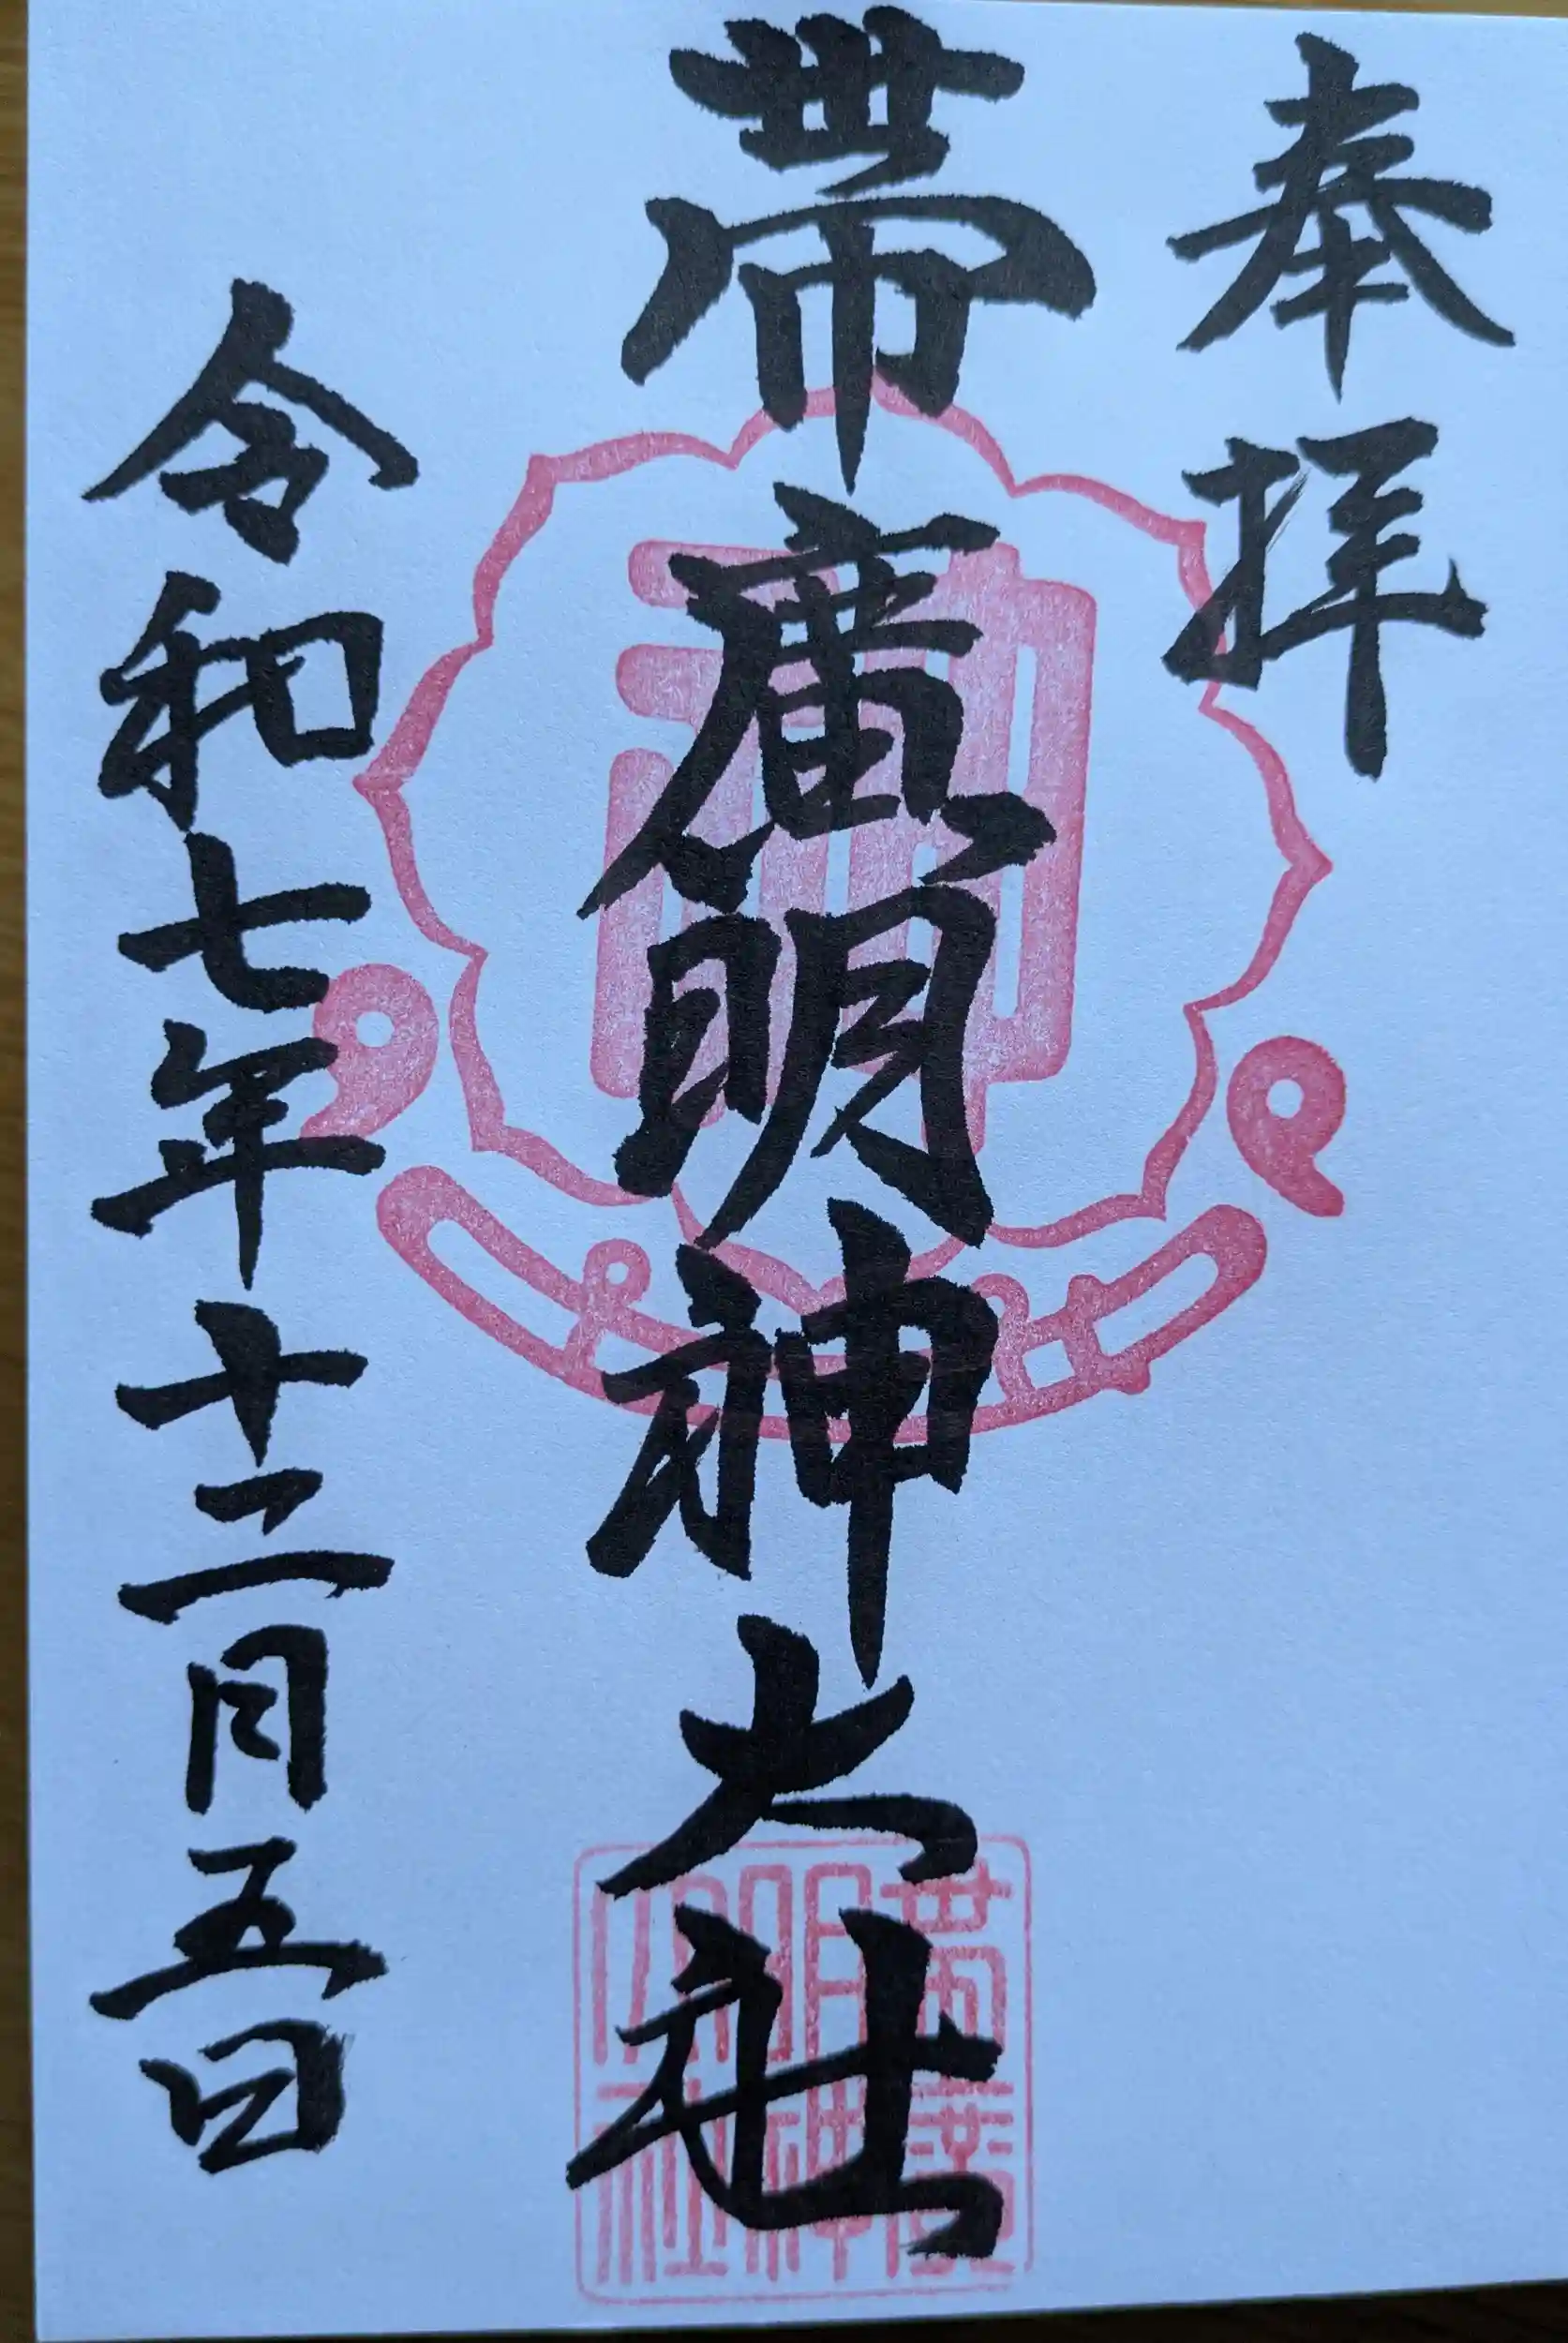 奉拝
帯廣明神大社
令和七年十二月五日
帯廣
明神
大社